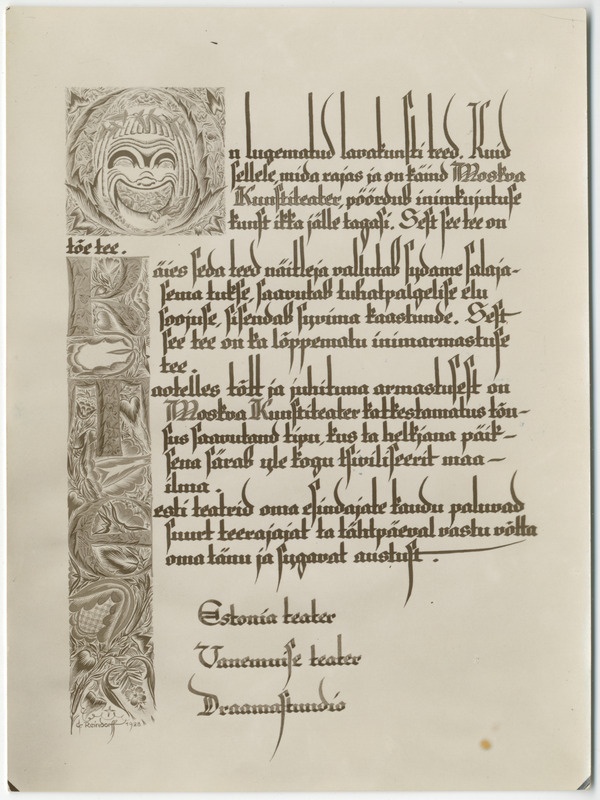 On lugematud lavakunsti teed. Kuid
sellele, mida rajas ja on käind Moskva
Kunstiteater, pöördub inimkujutuse
kunst ikka jälle tagasi. Sest see tee on
tõe tee.
Käies seda teed näitleja vallutab sydame salaja-
sema tukse, saavutab tuhatpalgelise elu
soojuse, sisendab syvima kaastunde. Sest
see tee on ka lõppematu inimarmastuse
tee.
Taotelles tõtt ja juhituna armastusest on
Moskva Kunstiteater katkestamatus tõu-
sus saavutand tipu, kus ta helkjana päik-
sena särab yle kogu tsiviliseerit maa-
ilma.
Eesti teatrid oma esindajate kaudu paluvad
suurt teerajajat ta tähtpäeval vastu võtta
oma tänu ja sygavat austust.
Estonia teater
Vanemuise teater
Draamastuudio
G Reindorff 1928